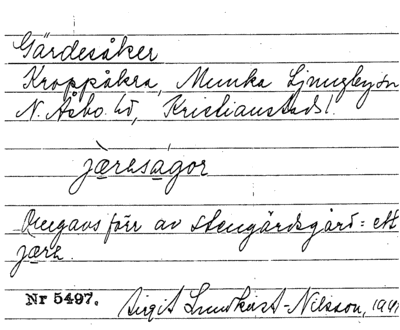 Gärdesåker
Kroppåkra, Munka Ljungby sn
N. Åsbo hd, Kristianstads l.
järesågor
Omgavs förr av stengärdsgård = ett
järe.
Nr 5497. Birgit Lundkvist-Nilsson, 1941